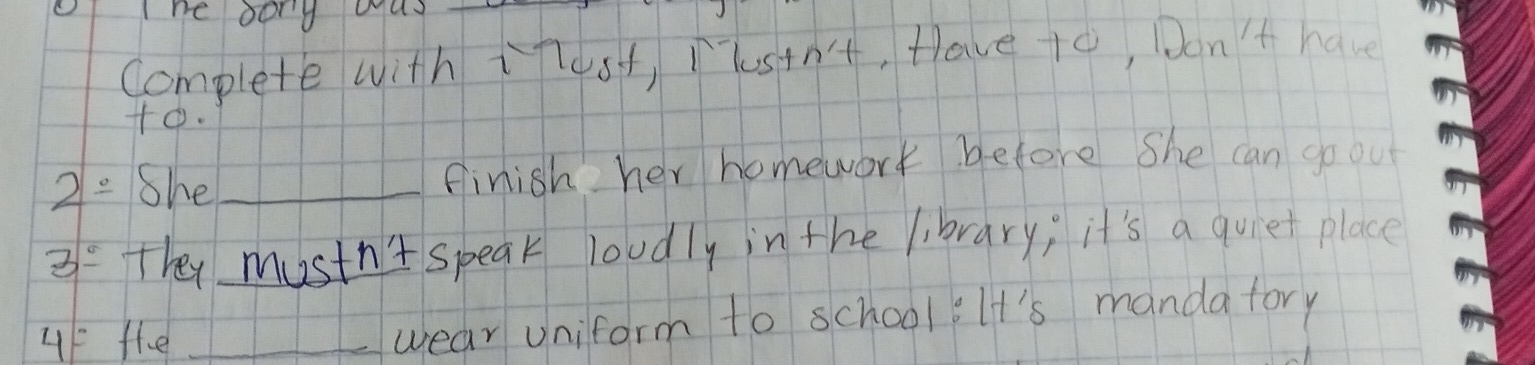 The song was
Complete with Must, Mustn't, Have to, Don't have
to.
2= She ________ finish her homework before She can go out
3= They mustn't speak loudly in the library; it's a quiet place
4= He ________ wear uniform to school: It's mandatory